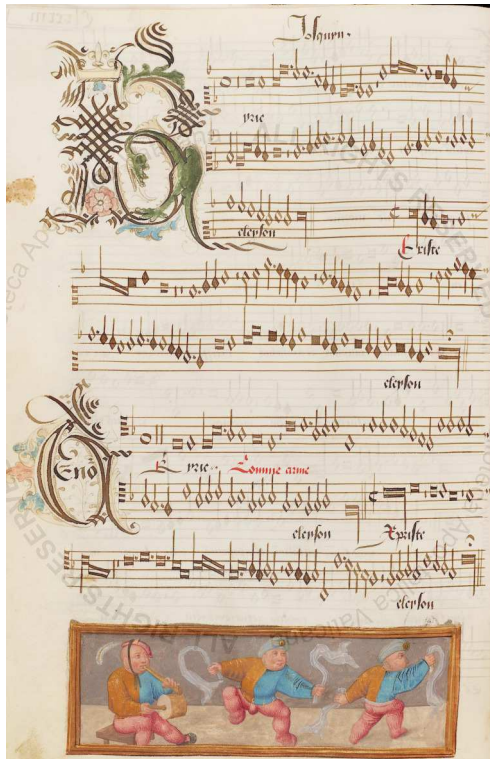 Josquin.
yrie
eleyson
Criste
eleyson
Tenor
Kyrie. Lomme arme
eleyson Xpriste
eleyson
ALL RIGHTS RESERVED